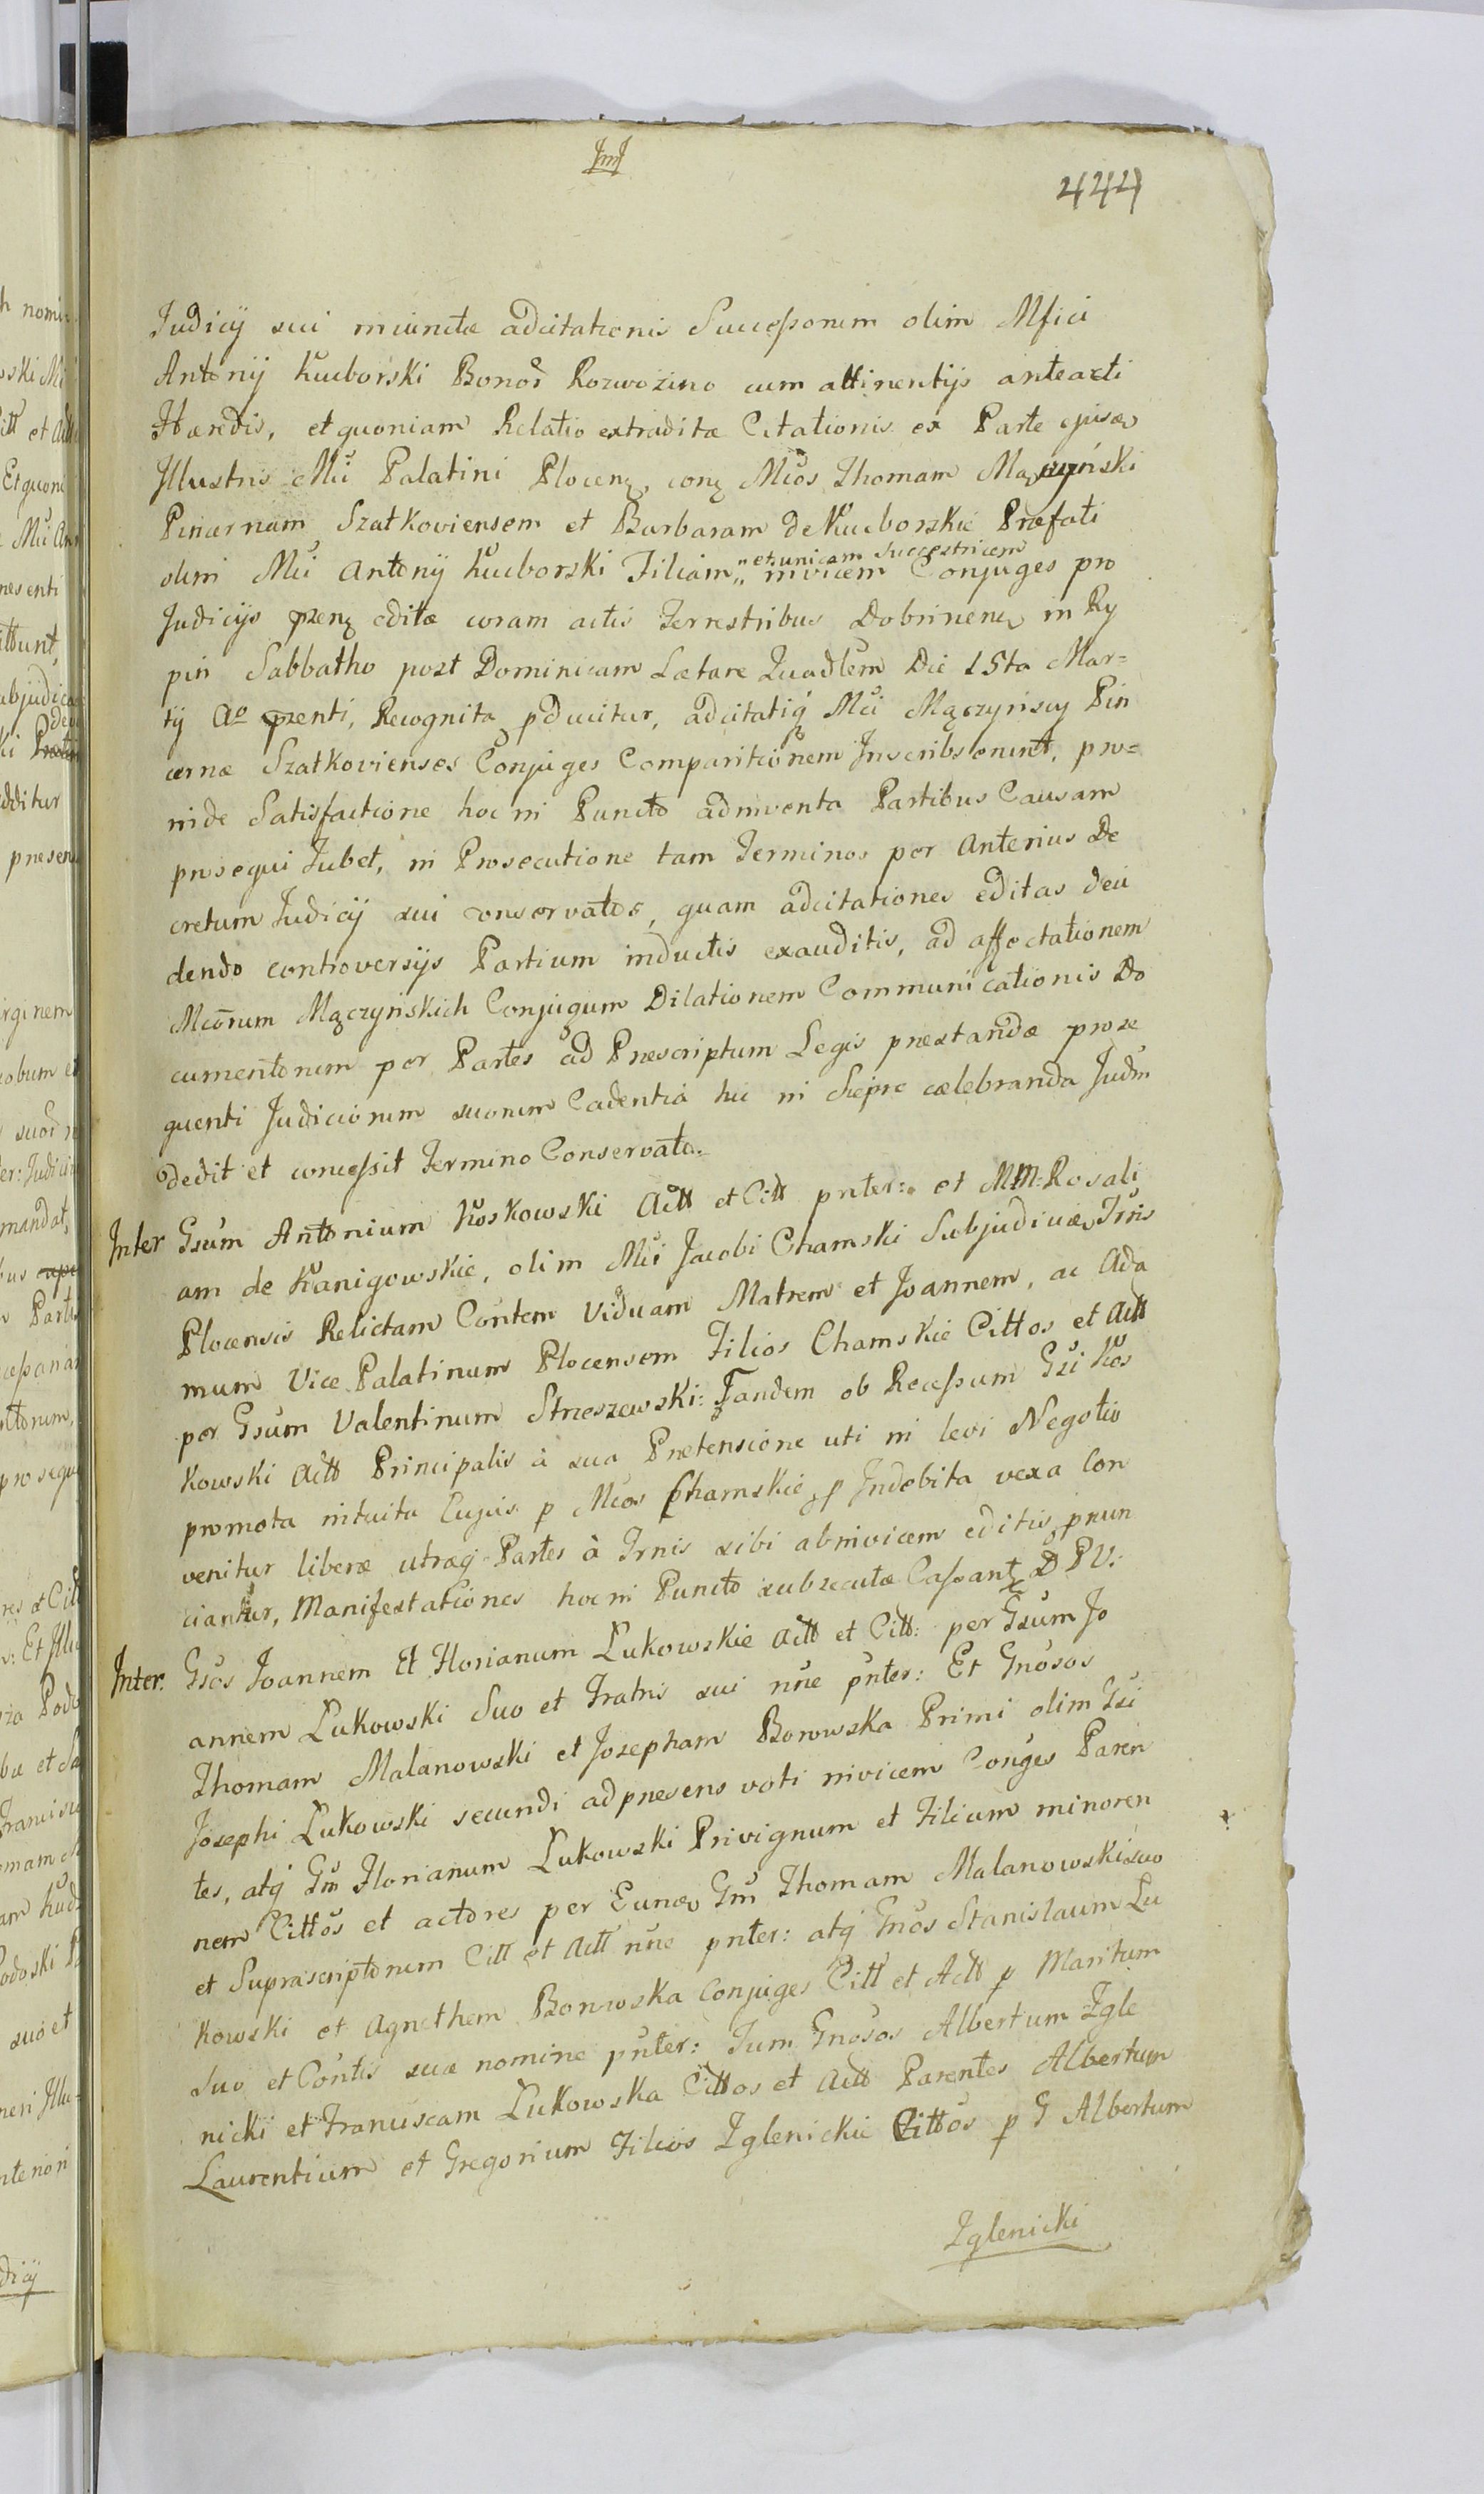 JmJ
444
Judicij sui iniunctæ adcitationis Successorum olim Mfici
Antonij Kucborski Bonor̃ Rozwozino cum attinentijs anteacti
Hæredis, et quoniam Relatio extraditæ Citationis ex Parte ejusd
Illustris Mci Palatini Plocenẓ, conẓ Mcos Thomam Mączyński
Pincernam Szatkoviensem et Barbaram de Kucborskie Præfati
olim Mci Antonij Kucborski Filiam „ et unicam Successtricem
invicem Conjuges pro
Judicijs przenẓ editæ coram actis Terrestribus Dobrinenẓ in Ry
pin Sabbatho post Dominicam Lætare Quadlem Die 15ta Mar=
tij Ao przenti, Recognita pducitur, adcitatiq́ Mci Mączyńscy Pin
cernæ Szatkovienses Conjuges Comparitionem Inscribserunt, pro=
inde Satisfactione hoc in Puncto adinventa Partibus Causam
prosequi Jubet, in Prosecutione tam Terminos per Anterius De
cretum Judicij sui conservatos, quam adcitationes editas deci
dendo controversijs Partium inductis exauditis, ad affectationem
Mcorum Mączyńskich Conjugum Dilationem Communicationis Do
cumentorum per Partes ad Præscriptum Legis præstandæ pro se
quenti Judiciorum suorum Cadentia hic in Siepre cælebranda Judm
dedit et concessit Termino Conservato.
Inter Gsum Antonium Koskowski Actt et Citt pnter: et MM Rosali
am de Kanigowskie, olim Mci Jacobi Chamski Subjudicis Trris
Plocensis Relictam Contem Viduam Matrem et Joannem, ac Ada
mum Vice Palatinum Plocensem Filios Chamskie Cittos et Actt
per Gsum Valentinum Strzeszewski: Tandem ob Recessum Gsi Kos
kowski Actt Principalis à sua Prætensione uti in levi Negotio
promota intuitu Cujus p Mcos Chamskie, p Indebita vexa Con
venitur liberæ utræq Partes à Trnis sibi abinvicem editis pnun
ciantur, Manifestationes hoc in Puncto subsecutæ Cassantẓ D P V:
Inter. Gsos Joannem Et Florianum Łukowskie Actt et Citt: per Gsum Jo
annem Łukowski Suo et Fratris sui nñe pñter: Et Gnosos
Thomam Malanowski et Josepham Borowska Primi olim Gsi
Josephi Łukowski secundi ad præsens voti invicem Conges Paren
tes, atq́ Gm Florianum Łukowski Privignum et Filium minoren
nem Cittos et actores per Eund Gm Thomam Malanowski suo
et Suprascriptorum Citt et Actt nñe pnter: atq́ Gnos Stanislaum Łu
kowski et Agnethem Borowska Conjuges Citt et Actt p Maritum
Suo et Contis suæ nomine pñter: Tum Gnosos Albertum Zgle
nicki et Franciscam Łukowska Cittos et Actt Parentes Albertum
Laurentium et Gregorium Filios Zglenickie Cittos p G Albertum
Zglenicki